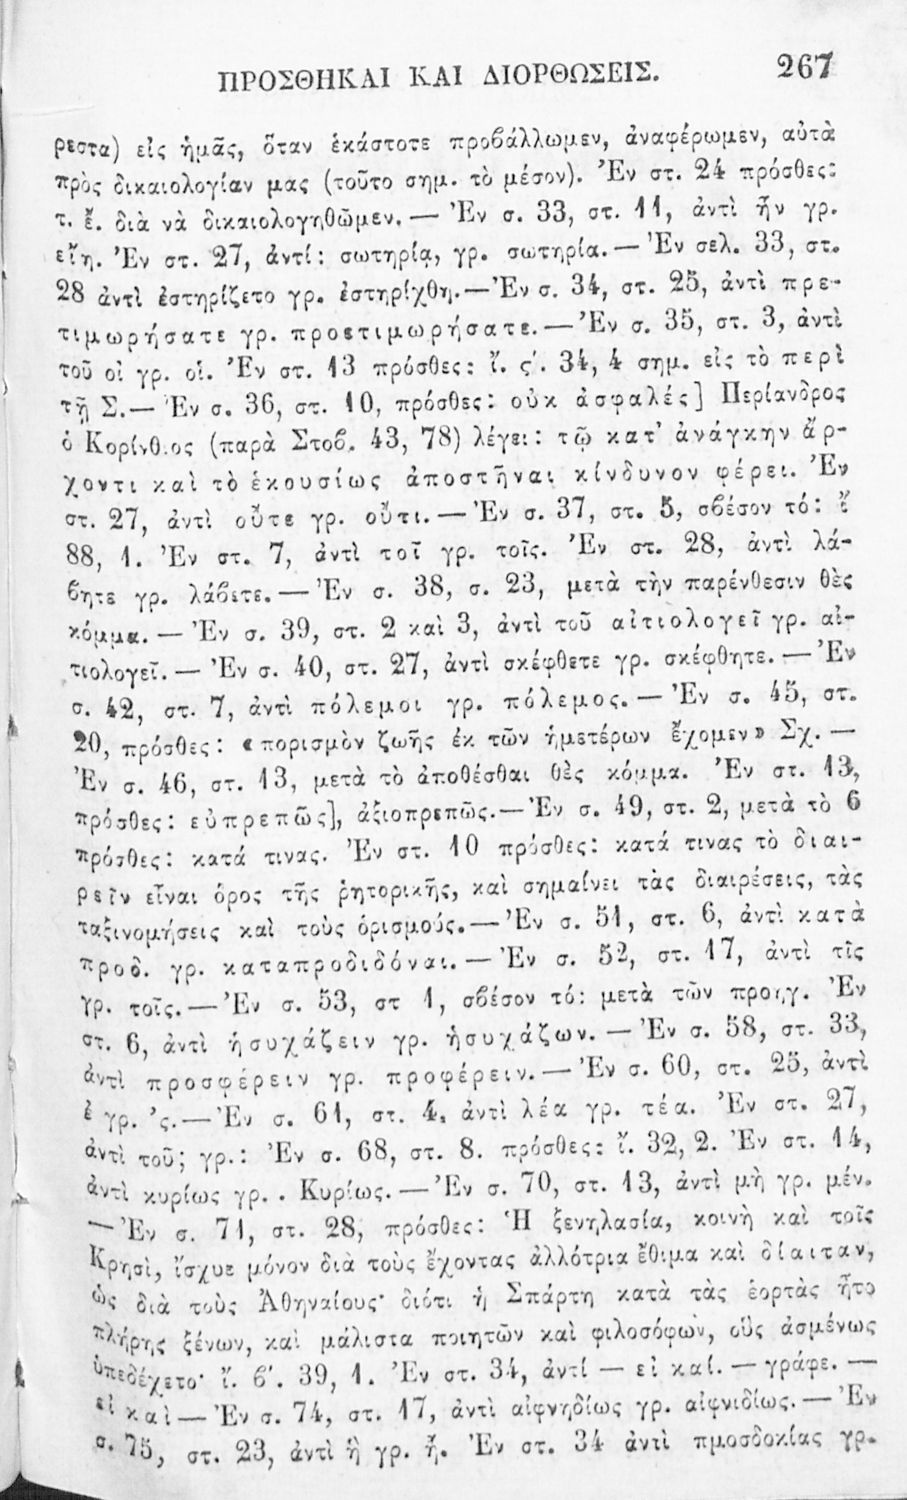 ΠΡΟΣΘΗΚΑΙ ΚΑΙ ΔΙΟΡΘΩΣΕΙΣ. 267
ρεστα) εἰς ἡμᾶς, ὅταν ἑκάστοτε προβάλλωμεν, ἀναφέρωμεν, αὐτὰ
πρὸς δικαιολογίαν μας (τοῦτο σημ. τὸ μέσον). Ἐν στ. 24 πρόσθες:
τ. ἔ. διὰ νὰ δικαιολογηθῶμεν. — Ἐν σ. 33, στ. 11, ἀντὶ ἦν γρ.
εἴη. Ἐν στ. 27, ἀντί: σωτηρίᾳ, γρ. σωτηρία. — Ἐν σελ. 33, στ.
28 ἀντὶ ἐστηρίζετο γρ. ἐστηρίχθη. — Ἐν σ. 34, στ. 25, ἀντὶ πρε-
τιμωρήσατε γρ. προετιμωρήσατε. — Ἐν σ. 35, στ. 3, ἀντὶ
τοῦ οἱ γρ. οἵ. Ἐν στ. 13 πρόσθες: ἴ. ϛ΄. 34, 4 σημ. εἰς τὸ περὶ
τῇ Σ. — Ἐν σ. 36, στ. 10, πρόσθες: οὐκ ἀσφαλές] Περίανδρος
ὁ Κορίνθιος (παρὰ Στοβ. 43, 78) λέγει: τῷ κατ' ἀνάγκην ἄρ-
χοντι καὶ τὸ ἑκουσίως ἀποστῆναι κίνδυνον φέρει. Ἐν
στ. 27, ἀντὶ οὔτε γρ. οὔτι. — Ἐν σ. 37, στ. 5, σβέσον τό: ἴ
88, 1. Ἐν στ. 7, ἀντὶ τοῖ γρ. τοῖς. Ἐν στ. 28, ἀντὶ λά-
βητε γρ. λάβετε. — Ἐν σ. 38, σ. 23, μετὰ τὴν παρένθεσιν θὲς
κόμμα. — Ἐν σ. 39, στ. 2 καὶ 3, ἀντὶ τοῦ αἰτιολογεῖ γρ. αἰ-
τιολογεῖ. — Ἐν σ. 40, στ. 27, ἀντὶ σκέφθετε γρ. σκέφθητε. — Ἐν
σ. 42, στ. 7, ἀντὶ πόλεμοι γρ. πόλεμος. — Ἐν σ. 45, στ.
20, πρόσθες: «πορισμὸν ζωῆς ἐκ τῶν ἡμετέρων ἔχομεν» Σχ. —
Ἐν σ. 46, στ. 13, μετὰ τὸ ἀποθέσθαι θὲς κόμμα. Ἐν στ. 13,
πρόσθες: εὐπρεπῶς], ἀξιοπρεπῶς. — Ἐν σ. 49, στ. 2, μετὰ τὸ 6
πρόσθες: κατά τινας. Ἐν στ. 10 πρόσθες: κατά τινας τὸ διαι-
ρεῖν εἶναι ὅρος τῆς ῥητορικῆς, καὶ σημαίνει τὰς διαιρέσεις, τὰς
ταξινομήσεις καὶ τοὺς ὁρισμούς. — Ἐν σ. 51, στ. 6, ἀντὶ κατὰ
προδ. γρ. καταπροδιδόναι. — Ἐν σ. 52, στ. 17, ἀντὶ τῖς
γρ. τοῖς. — Ἐν σ. 53, στ 1, σβέσον τό: μετὰ τῶν προηγ. Ἐν
στ. 6, ἀντὶ ἡσυχάζειν γρ. ἡσυχάζων. — Ἐν σ. 58, στ. 33,
ἀντὶ προσφέρειν γρ. προφέρειν. — Ἐν σ. 60, στ. 25, ἀντὶ
ἐ γρ. 'ς. — Ἐν σ. 61, στ. 4, ἀντὶ λέα γρ. τέα. Ἐν στ. 27,
ἀντὶ τοῦ; γρ.: Ἐν σ. 68, στ. 8. πρόσθες: ἴ. 32, 2. Ἐν στ. 14,
ἀντὶ κυρίως γρ. . Κυρίως. — Ἐν σ. 70, στ. 13, ἀντὶ μὴ γρ. μέν.
— Ἐν σ. 71, στ. 28, πρόσθες: Ἡ ξενηλασία, κοινὴ καὶ τοῖς
Κρησὶ, ἴσχυε μόνον διὰ τοὺς ἔχοντας ἀλλότρια ἔθιμα καὶ δίαιταν,
ὡς διὰ τοὺς Ἀθηναίους· διότι ἡ Σπάρτη κατὰ τὰς ἑορτὰς ἦτο
πλήρης ξένων, καὶ μάλιστα ποιητῶν καὶ φιλοσόφων, οὓς ἀσμένως
ὑπεδέχετο· ἴ. β΄. 39, 1. Ἐν στ. 34, ἀντί — εἰ καί. — γράφε. —
εἰ καὶ — Ἐν σ. 74, στ. 17, ἀντὶ αἰφνηδίως γρ. αἰφνιδίως. — Ἐν
σ. 75, στ. 23, ἀντὶ ἢ γρ. ἦ. Ἐν στ. 34 ἀντὶ πμοσδοκίας γρ.